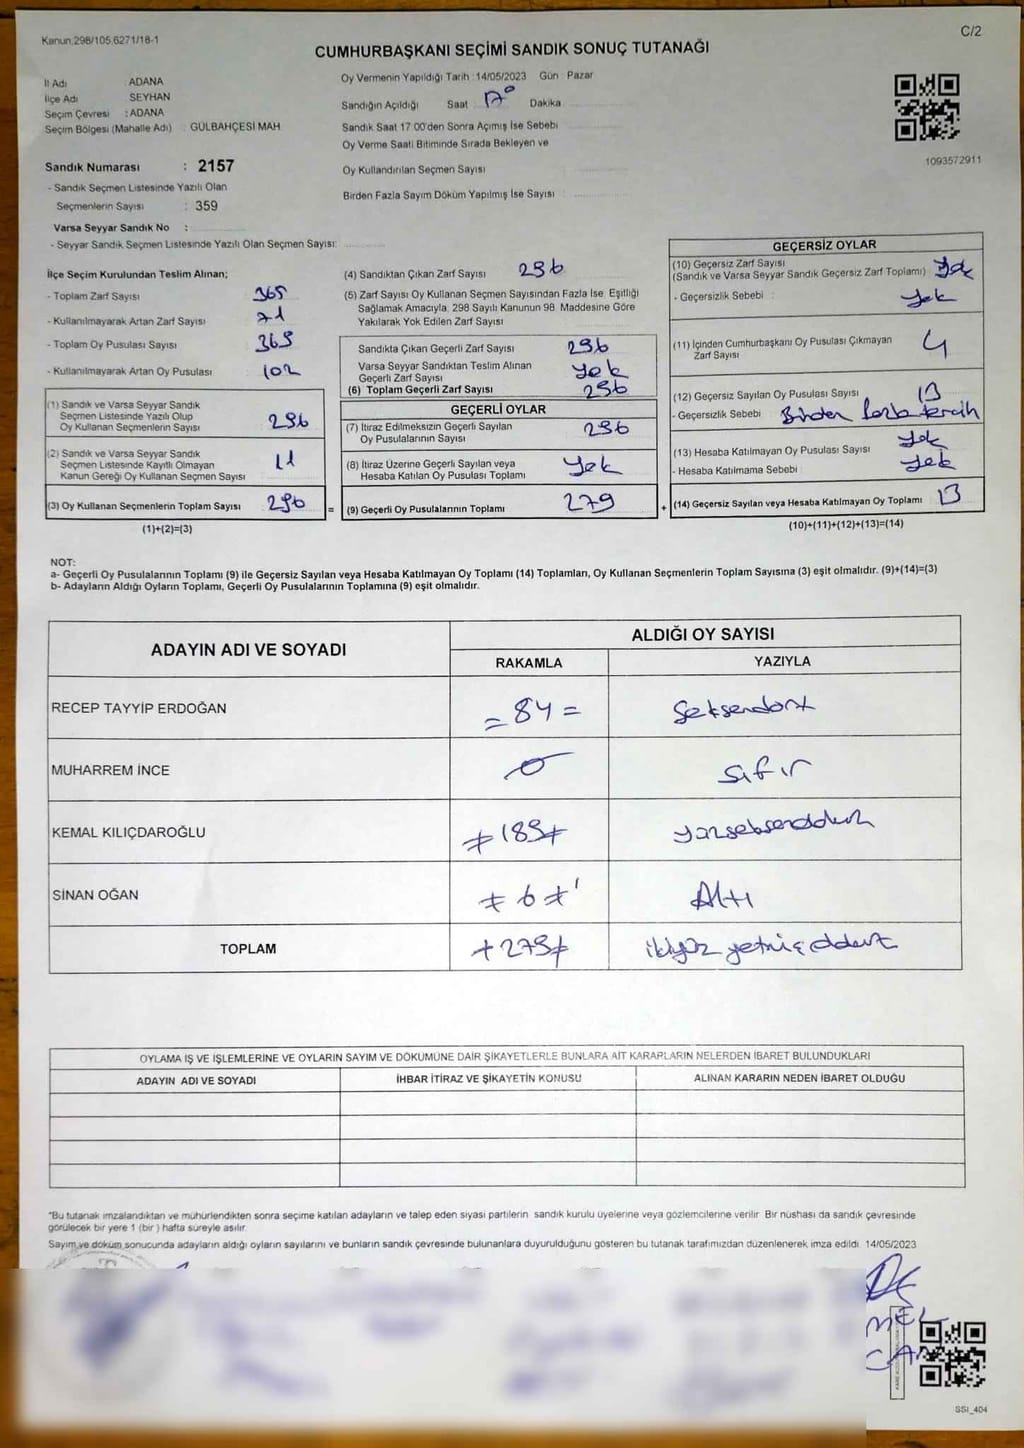 Kanun:298/105.6271/18-1
C/2
CUMHURBAŞKANI SEÇİMİ SANDIK SONUÇ TUTANAĞI
İl Adı : ADANA
İlçe Adı SEYHAN
Seçim Çevresi : ADANA
Seçim Bölgesi (Mahalle Adı) : GÜLBAHÇESİ MAH
Sandık Numarası : 2157
- Sandık Seçmen Listesinde Yazılı Olan
Seçmenlerin Sayısı : 359
Varsa Seyyar Sandık No :
- Seyyar Sandık Seçmen Listesinde Yazılı Olan Seçmen Sayısı:
Oy Vermenin Yapıldığı Tarih :14/05/2023 Gün : Pazar
Sandığın Açıldığı Saat : 17° Dakika
Sandık Saat 17:00'den Sonra Açımış İse Sebebi
Oy Verme Saati Bitiminde Sırada Bekleyen ve
Oy Kullandırılan Seçmen Sayısı
Birden Fazla Sayım Döküm Yapılmış İse Sayısı
1093572911
İlçe Seçim Kurulundan Teslim Alınan;
- Toplam Zarf Sayısı 365
- Kullanılmayarak Artan Zarf Sayısı 71
- Toplam Oy Pusulası Sayısı 365
- Kullanılmayarak Artan Oy Pusulası 102
(1) Sandık ve Varsa Seyyar Sandık
Seçmen Listesinde Yazılı Olup
Oy Kullanan Seçmenlerin Sayısı 296
(2) Sandık ve Varsa Seyyar Sandık
Seçmen Listesinde Kayıtlı Olmayan
Kanun Gereği Oy Kullanan Seçmen Sayısı 11
(3) Oy Kullanan Seçmenlerin Toplam Sayısı 296 =
(1)+(2)=(3)
(4) Sandıktan Çıkan Zarf Sayısı 296
(5) Zarf Sayısı Oy Kullanan Seçmen Sayısından Fazla İse, Eşitliği
Sağlamak Amacıyla, 298 Sayılı Kanunun 98. Maddesine Göre
Yakılarak Yok Edilen Zarf Sayısı
Sandıkta Çıkan Geçerli Zarf Sayısı 296
Varsa Seyyar Sandıktan Teslim Alınan
Geçerli Zarf Sayısı Yok
(6) Toplam Geçerli Zarf Sayısı 296
GEÇERLİ OYLAR
(7) İtiraz Edilmeksizin Geçerli Sayılan
Oy Pusulalarının Sayısı 296
(8) İtiraz Üzerine Geçerli Sayılan veya
Hesaba Katılan Oy Pusulası Toplamı Yok
(9) Geçerli Oy Pusulalarının Toplamı 279 +
GEÇERSİZ OYLAR
(10) Geçersiz Zarf Sayısı
(Sandık ve Varsa Seyyar Sandık Geçersiz Zarf Toplamı) Yok
- Geçersizlik Sebebi : Yok
(11) İçinden Cumhurbaşkanı Oy Pusulası Çıkmayan
Zarf Sayısı 4
(12) Geçersiz Sayılan Oy Pusulası Sayısı 13
- Geçersizlik Sebebi Birden fazla tercih
(13) Hesaba Katılmayan Oy Pusulası Sayısı Yok
- Hesaba Katılmama Sebebi Yok
(14) Geçersiz Sayılan veya Hesaba Katılmayan Oy Toplamı 13
(10)+(11)+(12)+(13)=(14)
NOT:
a- Geçerli Oy Pusulalarının Toplamı (9) ile Geçersiz Sayılan veya Hesaba Katılmayan Oy Toplamı (14) Toplamları, Oy Kullanan Seçmenlerin Toplam Sayısına (3) eşit olmalıdır. (9)+(14)=(3)
b- Adayların Aldığı Oyların Toplamı, Geçerli Oy Pusulalarının Toplamına (9) eşit olmalıdır.
ADAYIN ADI VE SOYADI
ALDIĞI OY SAYISI
RAKAMLA YAZIYLA
RECEP TAYYİP ERDOĞAN = 84 = Seksendört
MUHARREM İNCE 0 sıfır
KEMAL KILIÇDAROĞLU ≠ 189 ≠
SİNAN OĞAN ≠ 6 ≠ Altı
TOPLAM + 279 ≠
OYLAMA İŞ VE İŞLEMLERİNE VE OYLARIN SAYIM VE DÖKÜMÜNE DAİR ŞİKAYETLERLE BUNLARA AİT KARARLARIN NELERDEN İBARET BULUNDUKLARI
ADAYIN ADI VE SOYADI İHBAR İTİRAZ VE ŞİKAYETİN KONUSU ALINAN KARARIN NEDEN İBARET OLDUĞU
*Bu tutanak imzalandıktan ve mühürlendikten sonra seçime katılan adayların ve talep eden siyasi partilerin sandık kurulu üyelerine veya gözlemcilerine verilir. Bir nüshası da sandık çevresinde
görülecek bir yere 1 (bir) hafta süreyle asılır.
Sayım ve döküm sonucunda adayların aldığı oyların sayılarını ve bunların sandık çevresinde bulunanlara duyurulduğunu gösteren bu tutanak tarafımızdan düzenlenerek imza edildi. 14/05/2023
SSI_404